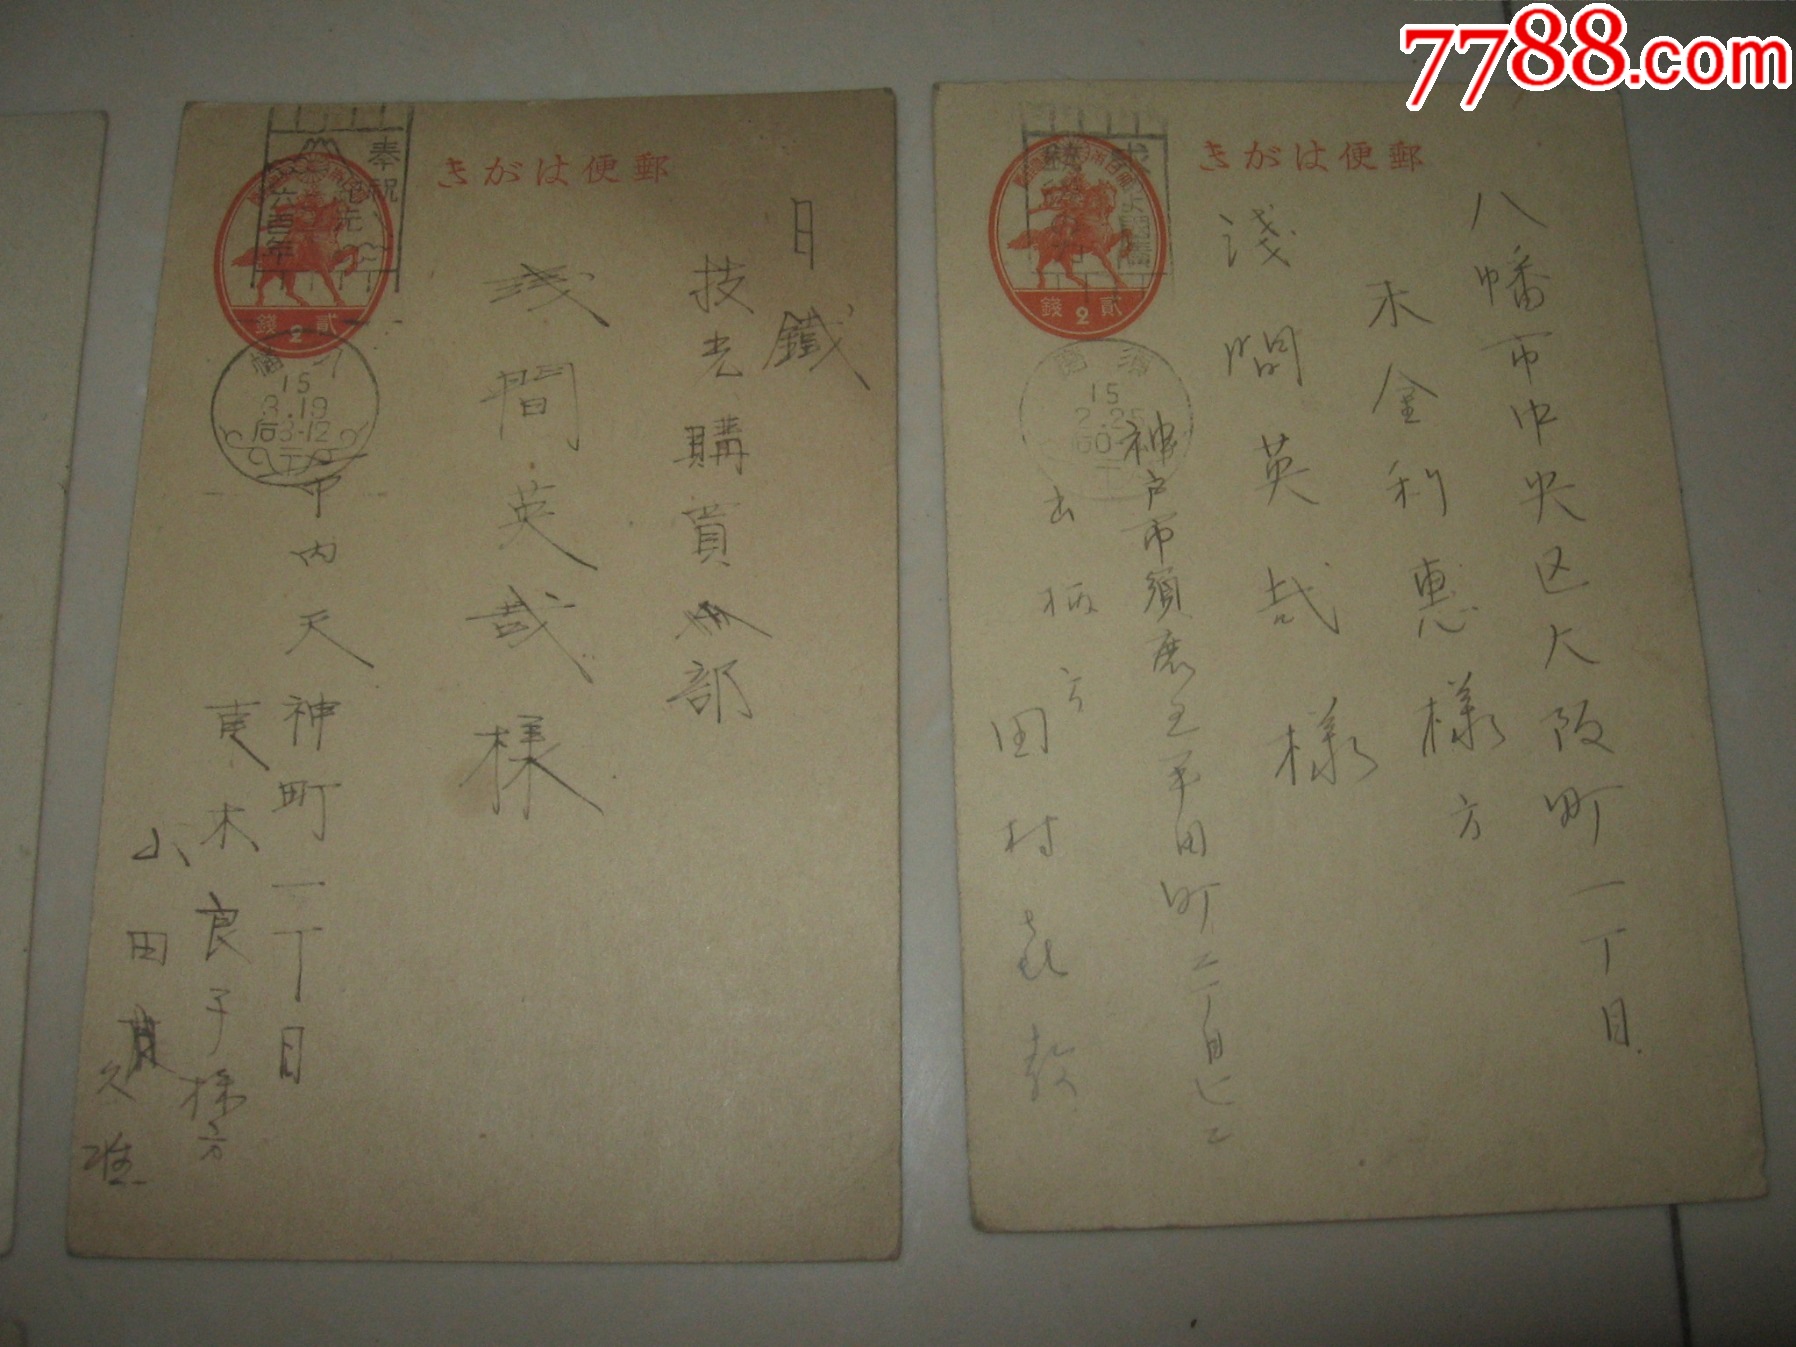 7788.com
郵便はがき
奉祝
六百年
貳錢
2
15
3.19
后3-12
日鐵
技光購買部
浅間英哉様
市内天神町一丁目
木良子様方
山田
久雄
郵便はがき
貳錢
2
15
2.25
八幡市中央区大阪町一丁目
木金利惠様方
淺間英哉様
神戸市須磨区平田町二丁目七二
方
田村